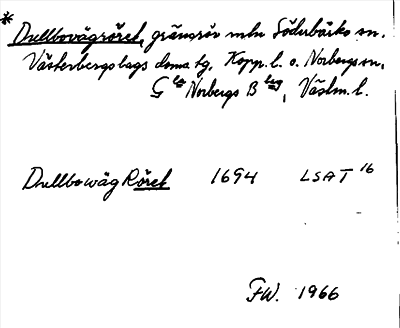 * Dullbovägröret, gränsrör mln Söderbärke sn.
Västerbergslags doms tg. Kopp. l. o. Norbergs sn,
Gla Norbergs Blag, Västm. l.
Dullbowäg Röret 1694 LSAT 16
FW. 1966